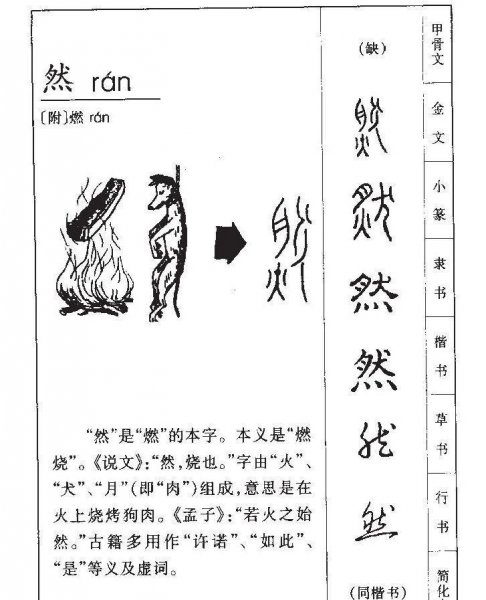 然 rán
〔附〕燃 rán
“然”是“燃”的本字。本义是“燃
烧”。《说文》：“然，烧也。”字由“火”、
“犬”、“月”(即“肉”)组成，意思是在
火上烧烤狗肉。《孟子》：“若火之始
然。”古籍多用作“许诺”、“如此”、
“是”等义及虚词。
(缺)
然
然
然
然
然
然
(同楷书)
甲骨文
金文
小篆
隶书
楷书
草书
行书
简化